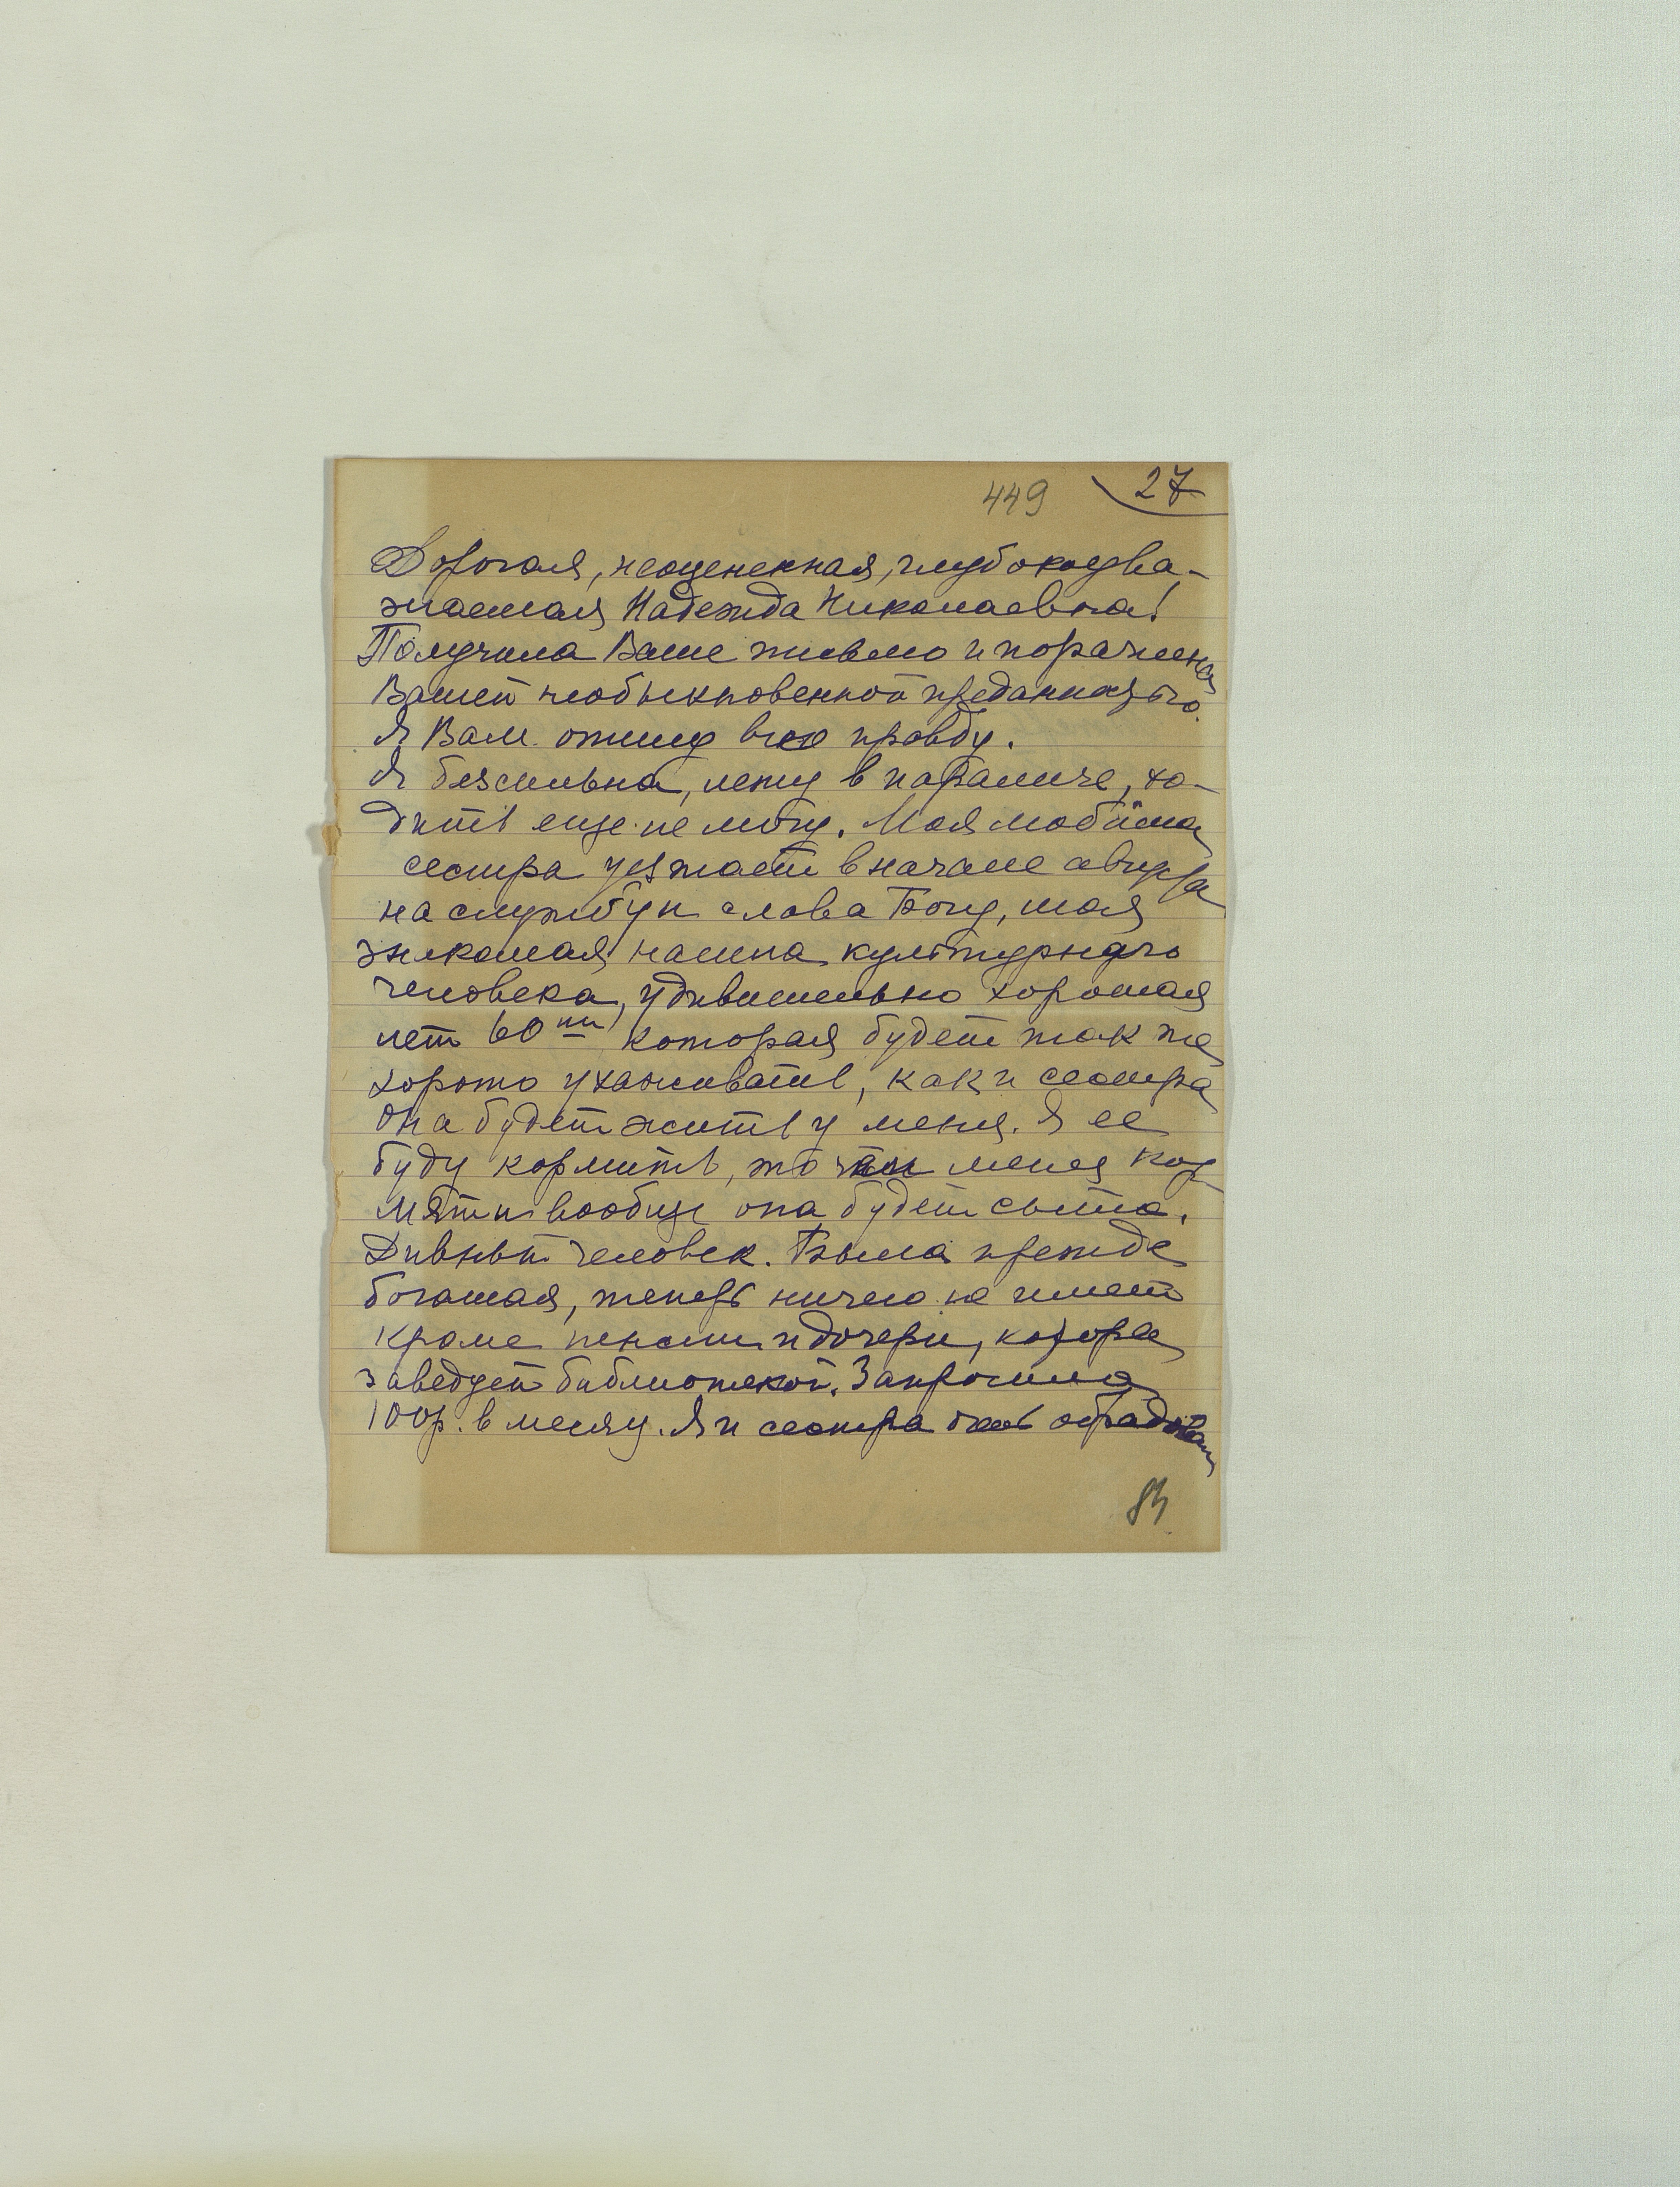 449 27
Дорогая, неоцененная, глубокоува-
жаемая Надежда Николаевна!
Получила Ваше письмо и поражена
Вашей необыкновенной преданностью.
Я Вам опишу всю правду.
Я безсильна, лежу в параличе, хо-
дить еще не могу. Моя любимая
сестра уезжает в начале августа
на службу и слава Богу, моя
знакомая культурнаго
человека, удивительно хорошая
лет 60ти которая будет так же
хорошо ухаживать, как и сестра
Она будет жить у меня. Я ее
буду кормить, то чем меня кор-
мят и вообще она будет сыта.
Дивный человек. Была прежде
богатая, теперь ничего не имеет
кроме пенсии и дочери, которая
заведует библиотекой. Запросила
100р. в месяц. Я и сестра обрадовались